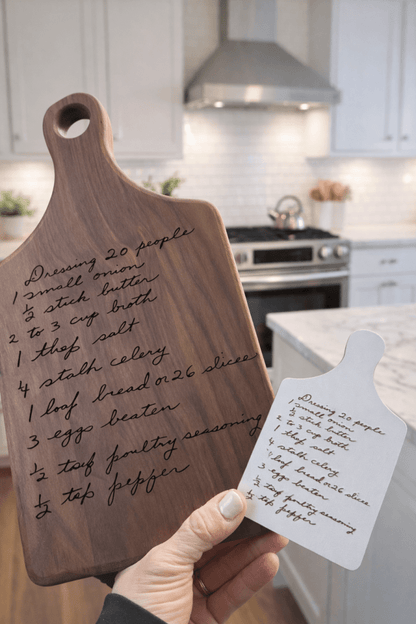 Dressing 20 people
1 small onion
½ stick butter
2 to 3 cup broth
1 thsp salt
4 stalk celery
1 loaf bread or 26 slices
3 eggs beaten
½ tsp poultry seasoning
½ tsp pepper
Dressing 20 people
1 small onion
½ stick butter
2 to 3 cup broth
1 thsp salt
4 stalk celery
loaf bread or 26 slice
3 eggs beaten
½ tsp poultry seasoning
½ tsp pepper